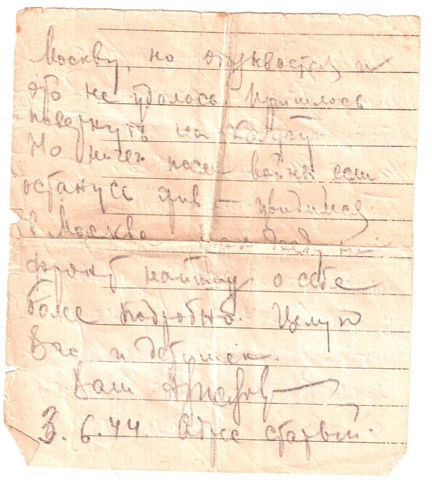 Москву, но и
это не удалось пришлось
повернуть на Калугу
Но ничего после войны если
останусь жив — увидимся
в Москве
фронт напишу о себе
более подробно. Целую
Вас и детишек.
Ваш
3.6.44. старый.